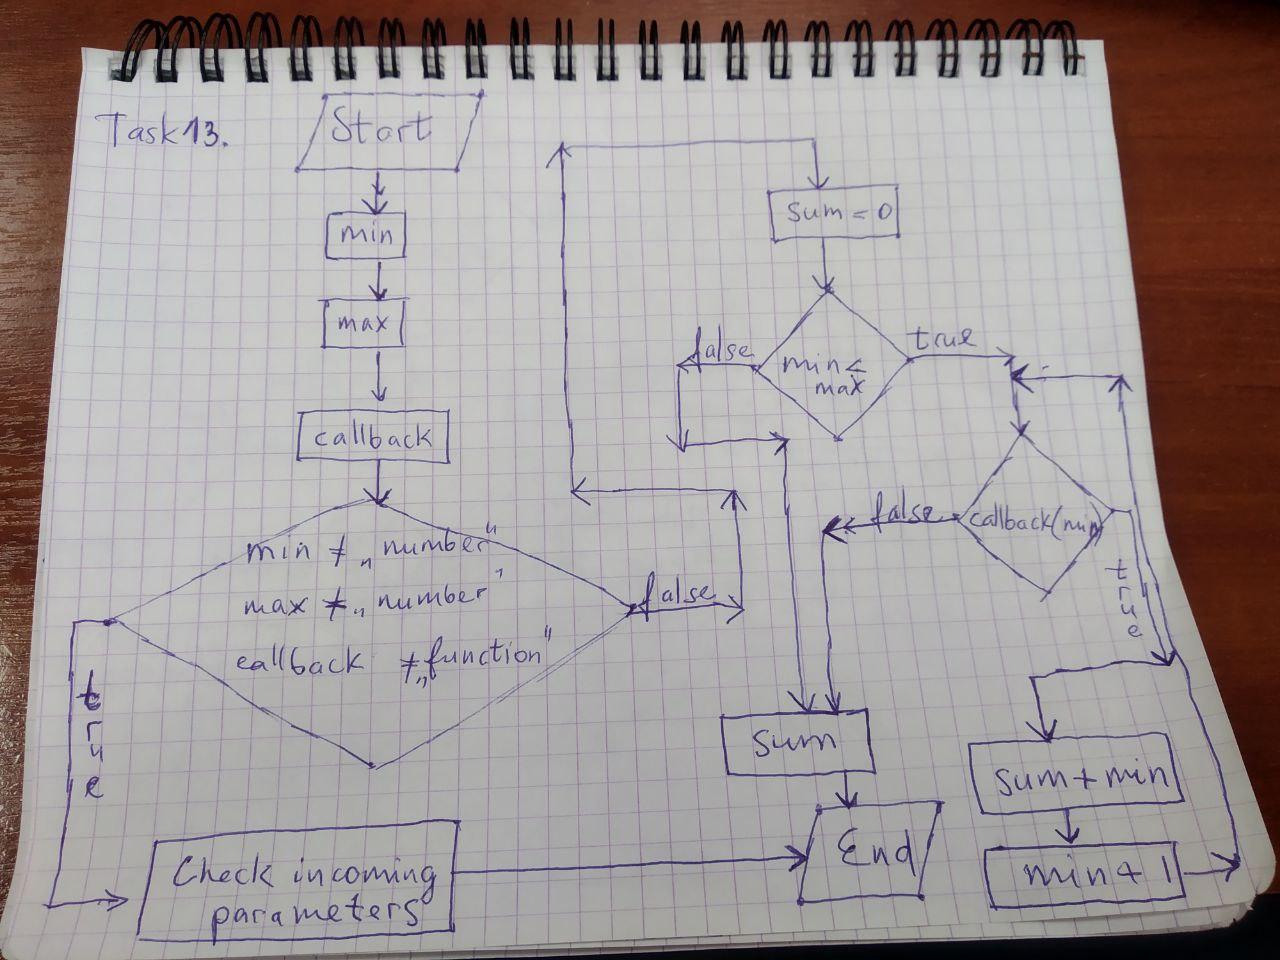 Task 13.
Start
min
max
callback
min ≠ „number"
max ≠ „number"
callback ≠ „function"
true
false
Check incoming
parameters
sum = 0
min <
max
false
true
callback(min)
false
true
sum
sum + min
min + 1
End